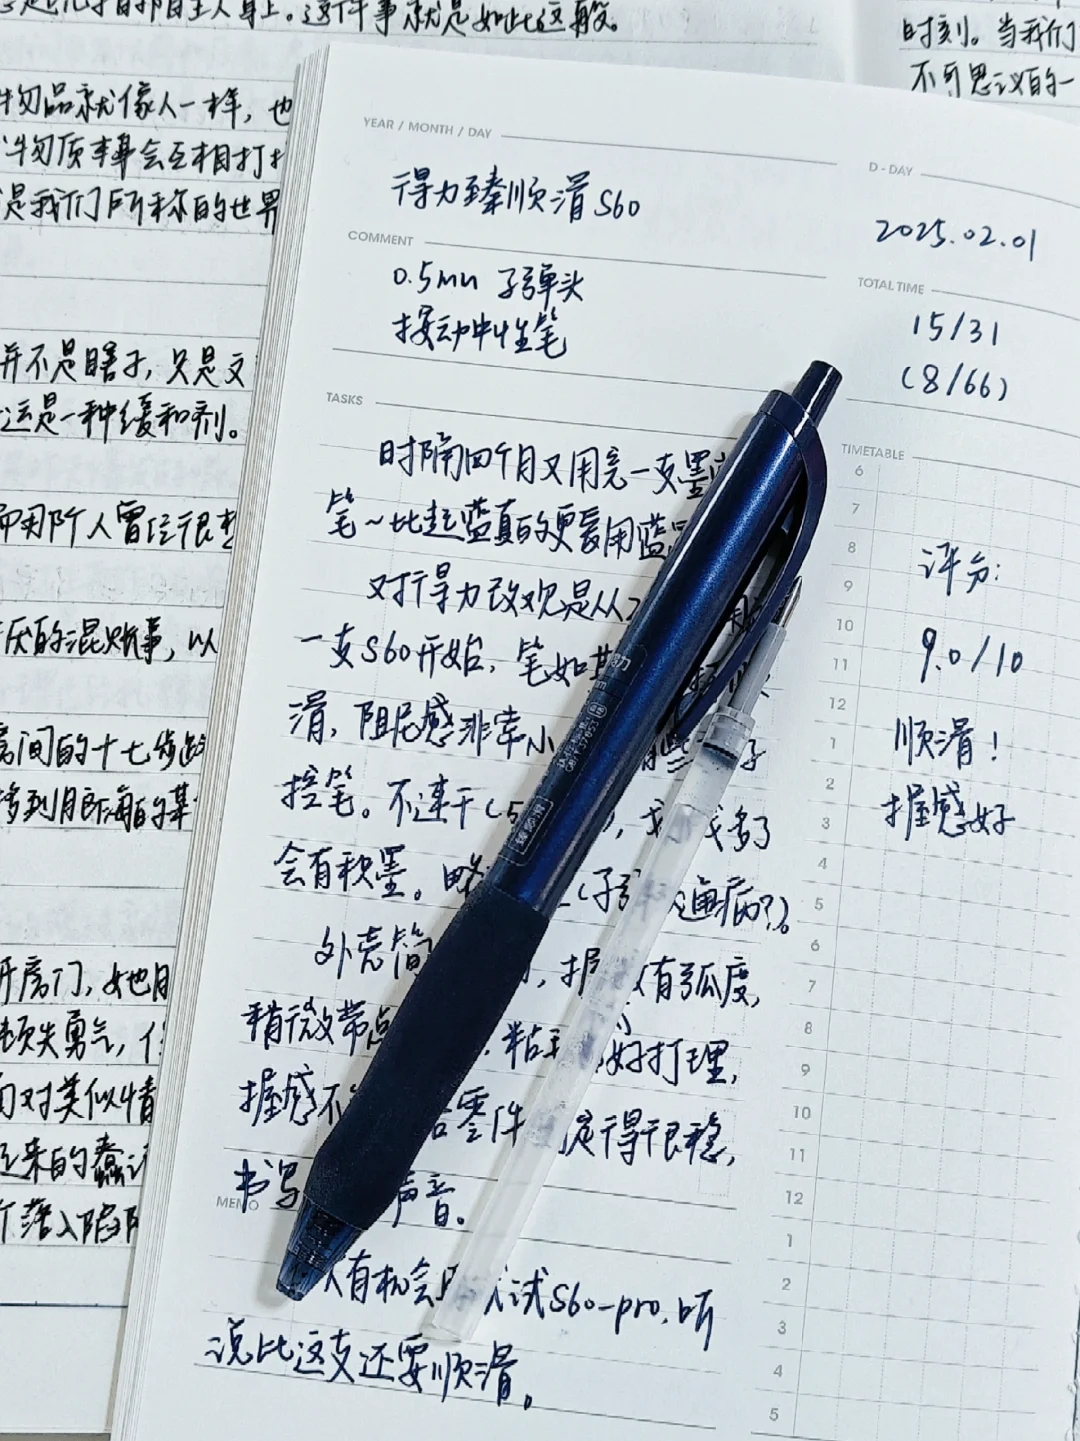 自主人身上。这件事就是如此这般。
物品就像人一样，也
物质事会互相打
是我们所称的世界
并不是瞎子，只是文
运是一种缓和剂。
人曾经很
的混账事，以
房间的十七步
开房门，她
顿失勇气，
对类似情
来的蠢
落入陷阱
时刻。当我们
不可思议的一
YEAR / MONTH / DAY
得力臻顺滑S60
D-DAY
2025.02.01
COMMENT
0.5mm 子弹头
按动中性笔
TOTAL TIME
15/31
(8/66)
TASKS
时隔四个月又用完一支墨
笔~比起蓝真的更爱用蓝
对得力改观是从
一支S60开始，笔如其
滑，阻尼感非常小 有些
控笔。不速干 多了
会有积墨。略 (子弹 通病?)。
外壳简 ，握 有弧度，
稍微带点 好打理，
握感不 零件 得很稳，
书写 声音。
有机会 试试S60-pro，听
说比这支还要顺滑。
MEMO
TIMETABLE
6
7
8
9
10
11
12
1
2
3
4
5
6
7
8
9
10
11
12
1
2
3
4
5
评分：
9.0/10
顺滑！
握感好
臻顺滑